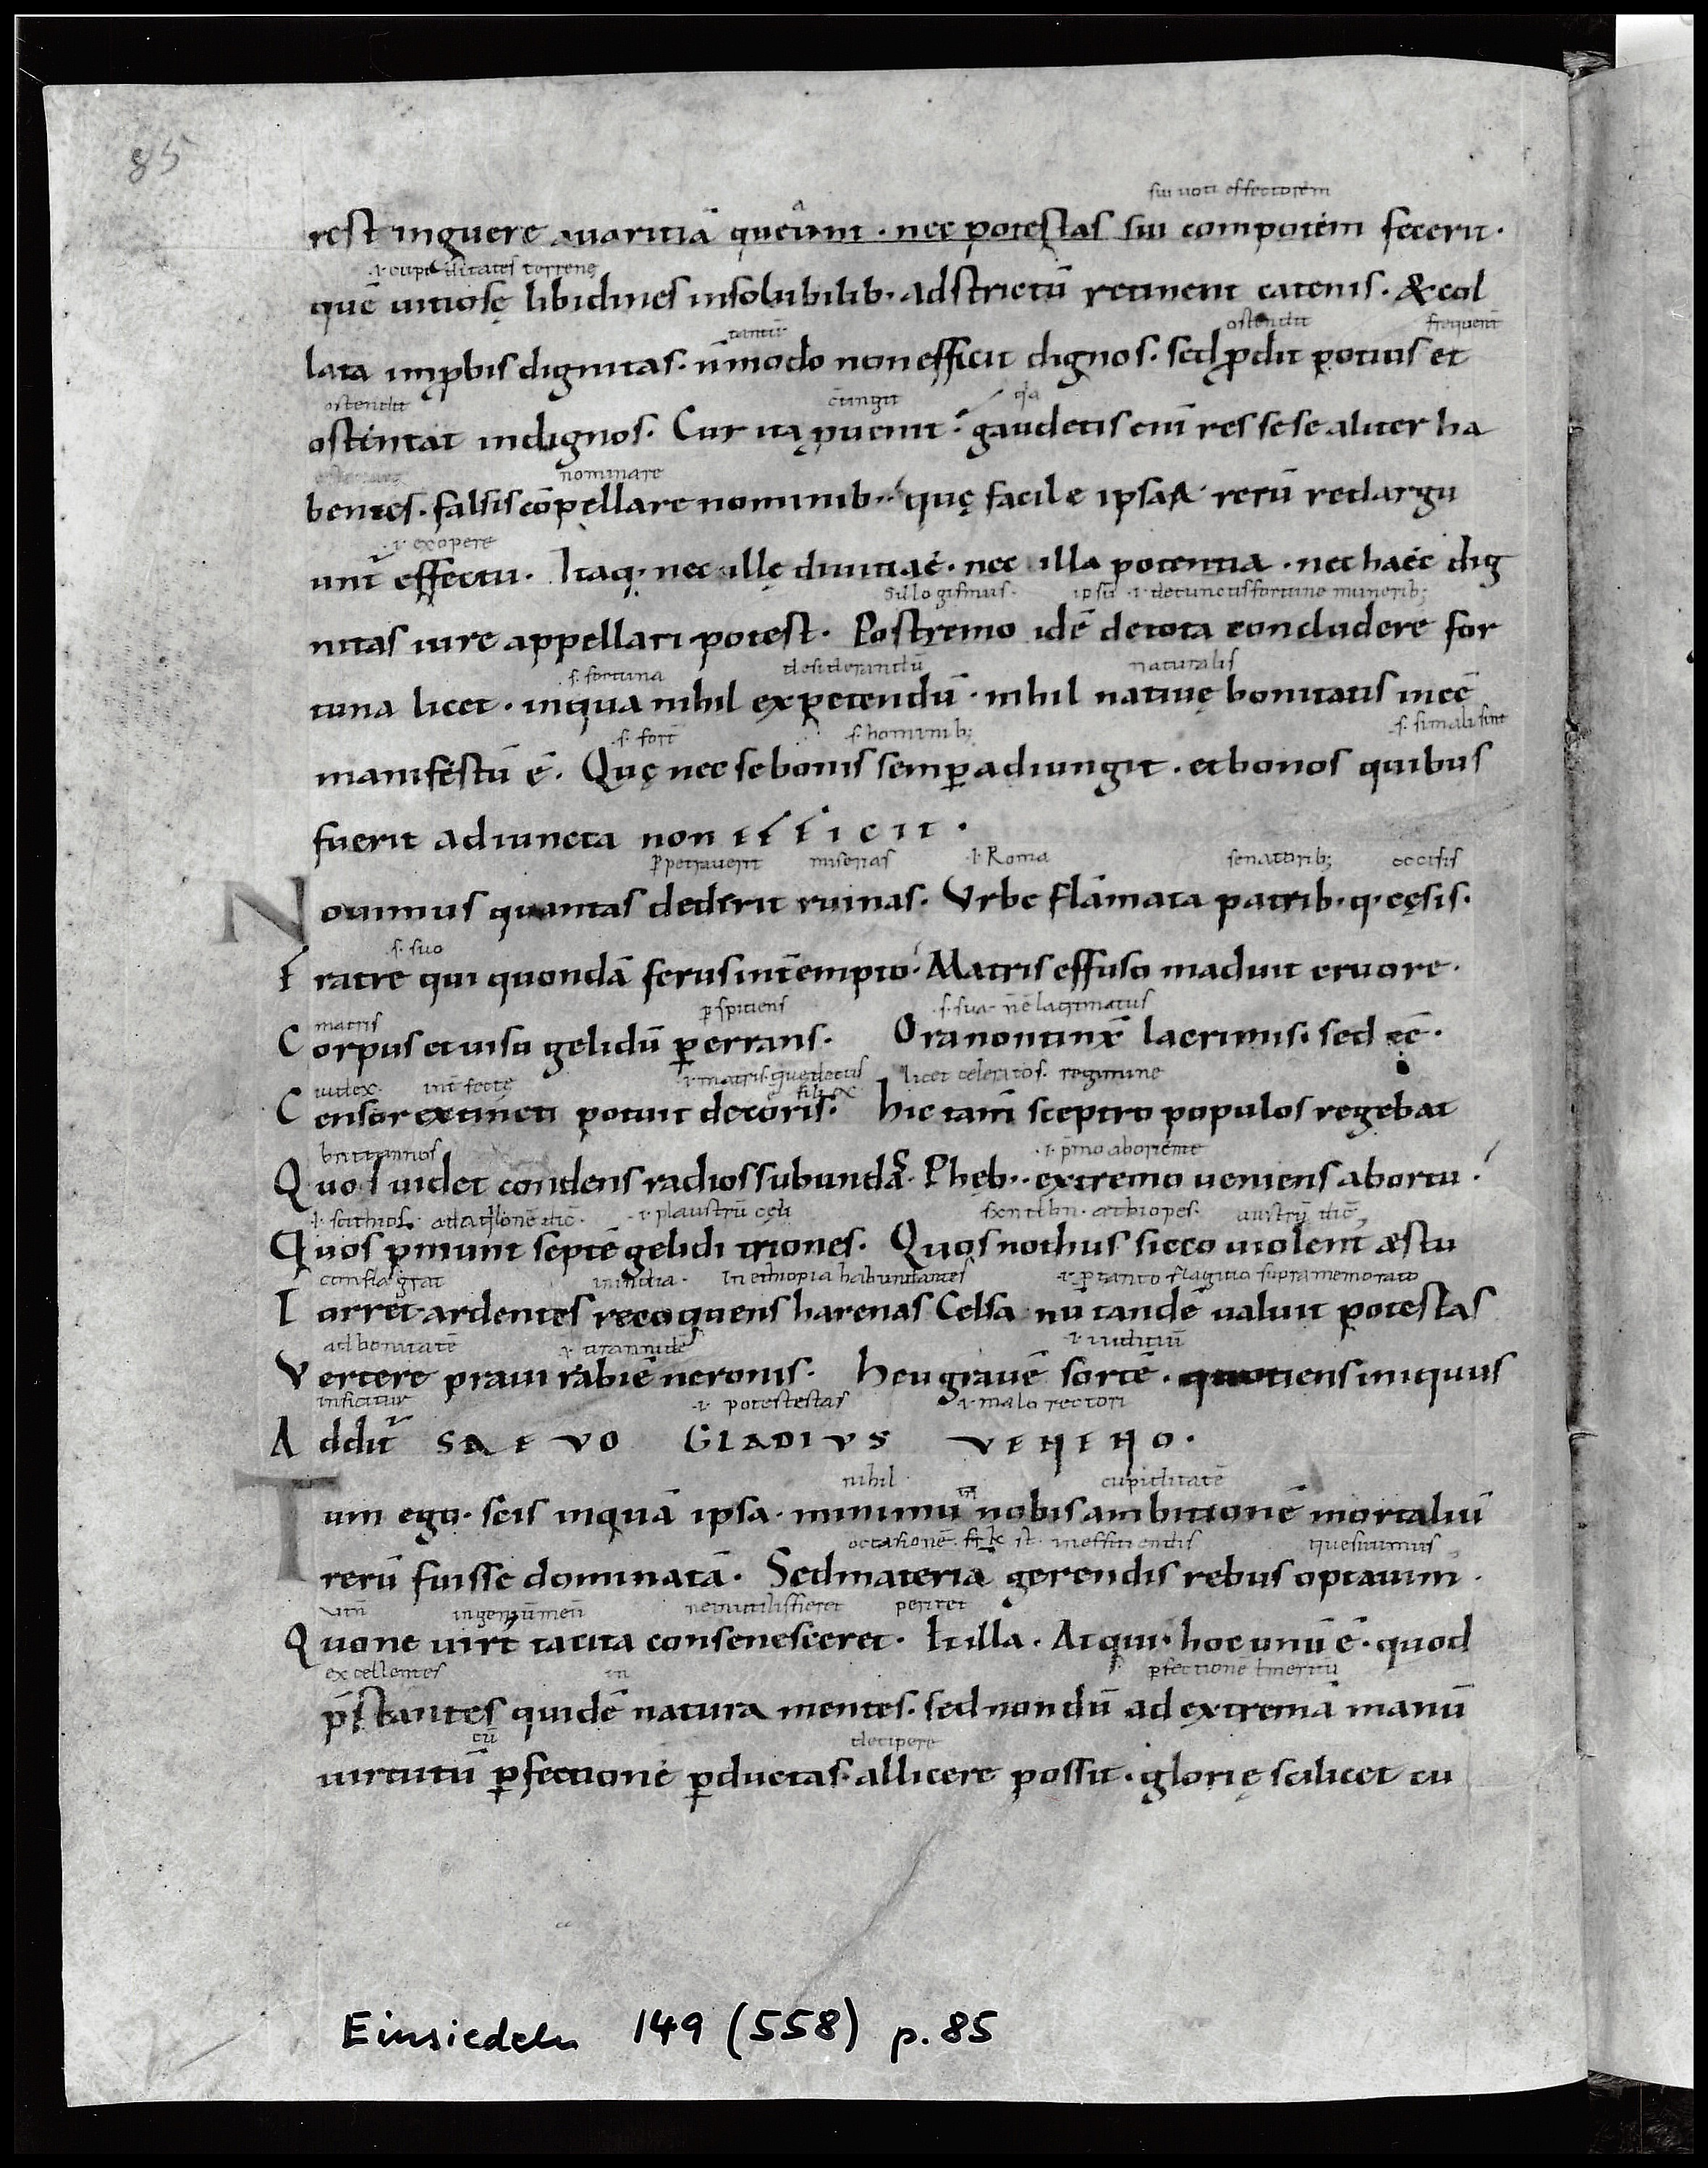 85
sui uoti effectorem
rest inguere auaritiā queunt · nec potestas sui compotem fecerit ·
.i. cupiditates terrenę
quē uitiosę libidines insolubilib · adstrictū retinent catenis · & col
tantū ostendit frequent
lata inp̱bis dignitas · n̄modo non efficit dignos · sed p̱dit potius et
ostendit ctingit qa
ostentat indignos · Cur ita p̱uenit · gaudetis enī res sese aliter ha
nominare
bentes · falsis cōpellare nominib · quę facile ipsaꝝ rerū redargu
.i. ex opere
unt̄ effectu · Itaq; nec illę diuitiae · nec illa potentia · nec haec dig
sillogismus · ipsū .i. decunctis fortune munerib;
nitas iure appellari potest · Postremo idē detota concludere for
s. fortuna desiderandū naturalis
tuna licet · inqua nihil expetendū · nihil natiuę bonitatis ineē
s. fort s. hominib; s. si mali sint
manifestū ē · Quę nec se bonis semp̱ adiungit · et bonos quibus
fuerit adiuncta non efficit ·
p̱petrauerit miserias .i. Roma senatorib; occisis
Nouimus quantas dederit ruinas · Vrbe flāmata patrib · q · cęsis ·
s. suo
Fratre qui quondā ferus int̄empto · Matris effuso maduit cruore ·
matris p̱spitiens s. sua nē lacrimatus
Corpus et uisu gelidū p̱errans · Ora non tinx̄ lacrimis · sed eē ·
iudex int̄fectę .i. matris quedecus licet celeratos regimine
Censor extincti potuit decoris · hic tam̄ sceptro populos regebat
brittannos .i. p̄mo aboriente
Quos uidet condens radios subundas Phęb · extremo ueniens abortu ·
.i. scithios ad aqlonē dic̄ · .i. plaustrū cęli aethiopes · austrū dic̄
Quos p̄munt septē gelidi triones · Quos nothus sicco uiolent æstu
conflagrat inindia · In ethiopia habundantes .i. p̱ tanto flagitio supra memorato
Torret ardentes recoquens harenas Celsa nū tandē ualuit potestas
ad bonitatē .i. tirannidē .i. iuditiū
Vertere praui rabiē neronis · heu grauē sortē · quotiens iniquus
inficitur .i. potestestas .i. malo rectori
Addit̄ SAEVO GLADIVS VENENO ·
nihil cupiditatē
Tum ego · scis inquā ipsa · minimū nobis ambitionē mortaliū
occasionē inefficiendis quesiuimus
rerū fuisse dominatā · Sed materiā gerendis rebus optauim ·
ingeniū meū ne inutilis fieret periret
Quone uirt̄ tacita consenesceret · Et illa · Atqui · hoc unū ē · quod
excellentes in p̱fectionē t meritū
p̄stantes quidē natura mentes · sed nondū ad extremā manū
cū decipere
uirtutū p̱fectione p̱ductas · allicere possit · glorię scilicet cu
Einsiedeln 149 (558) p. 85